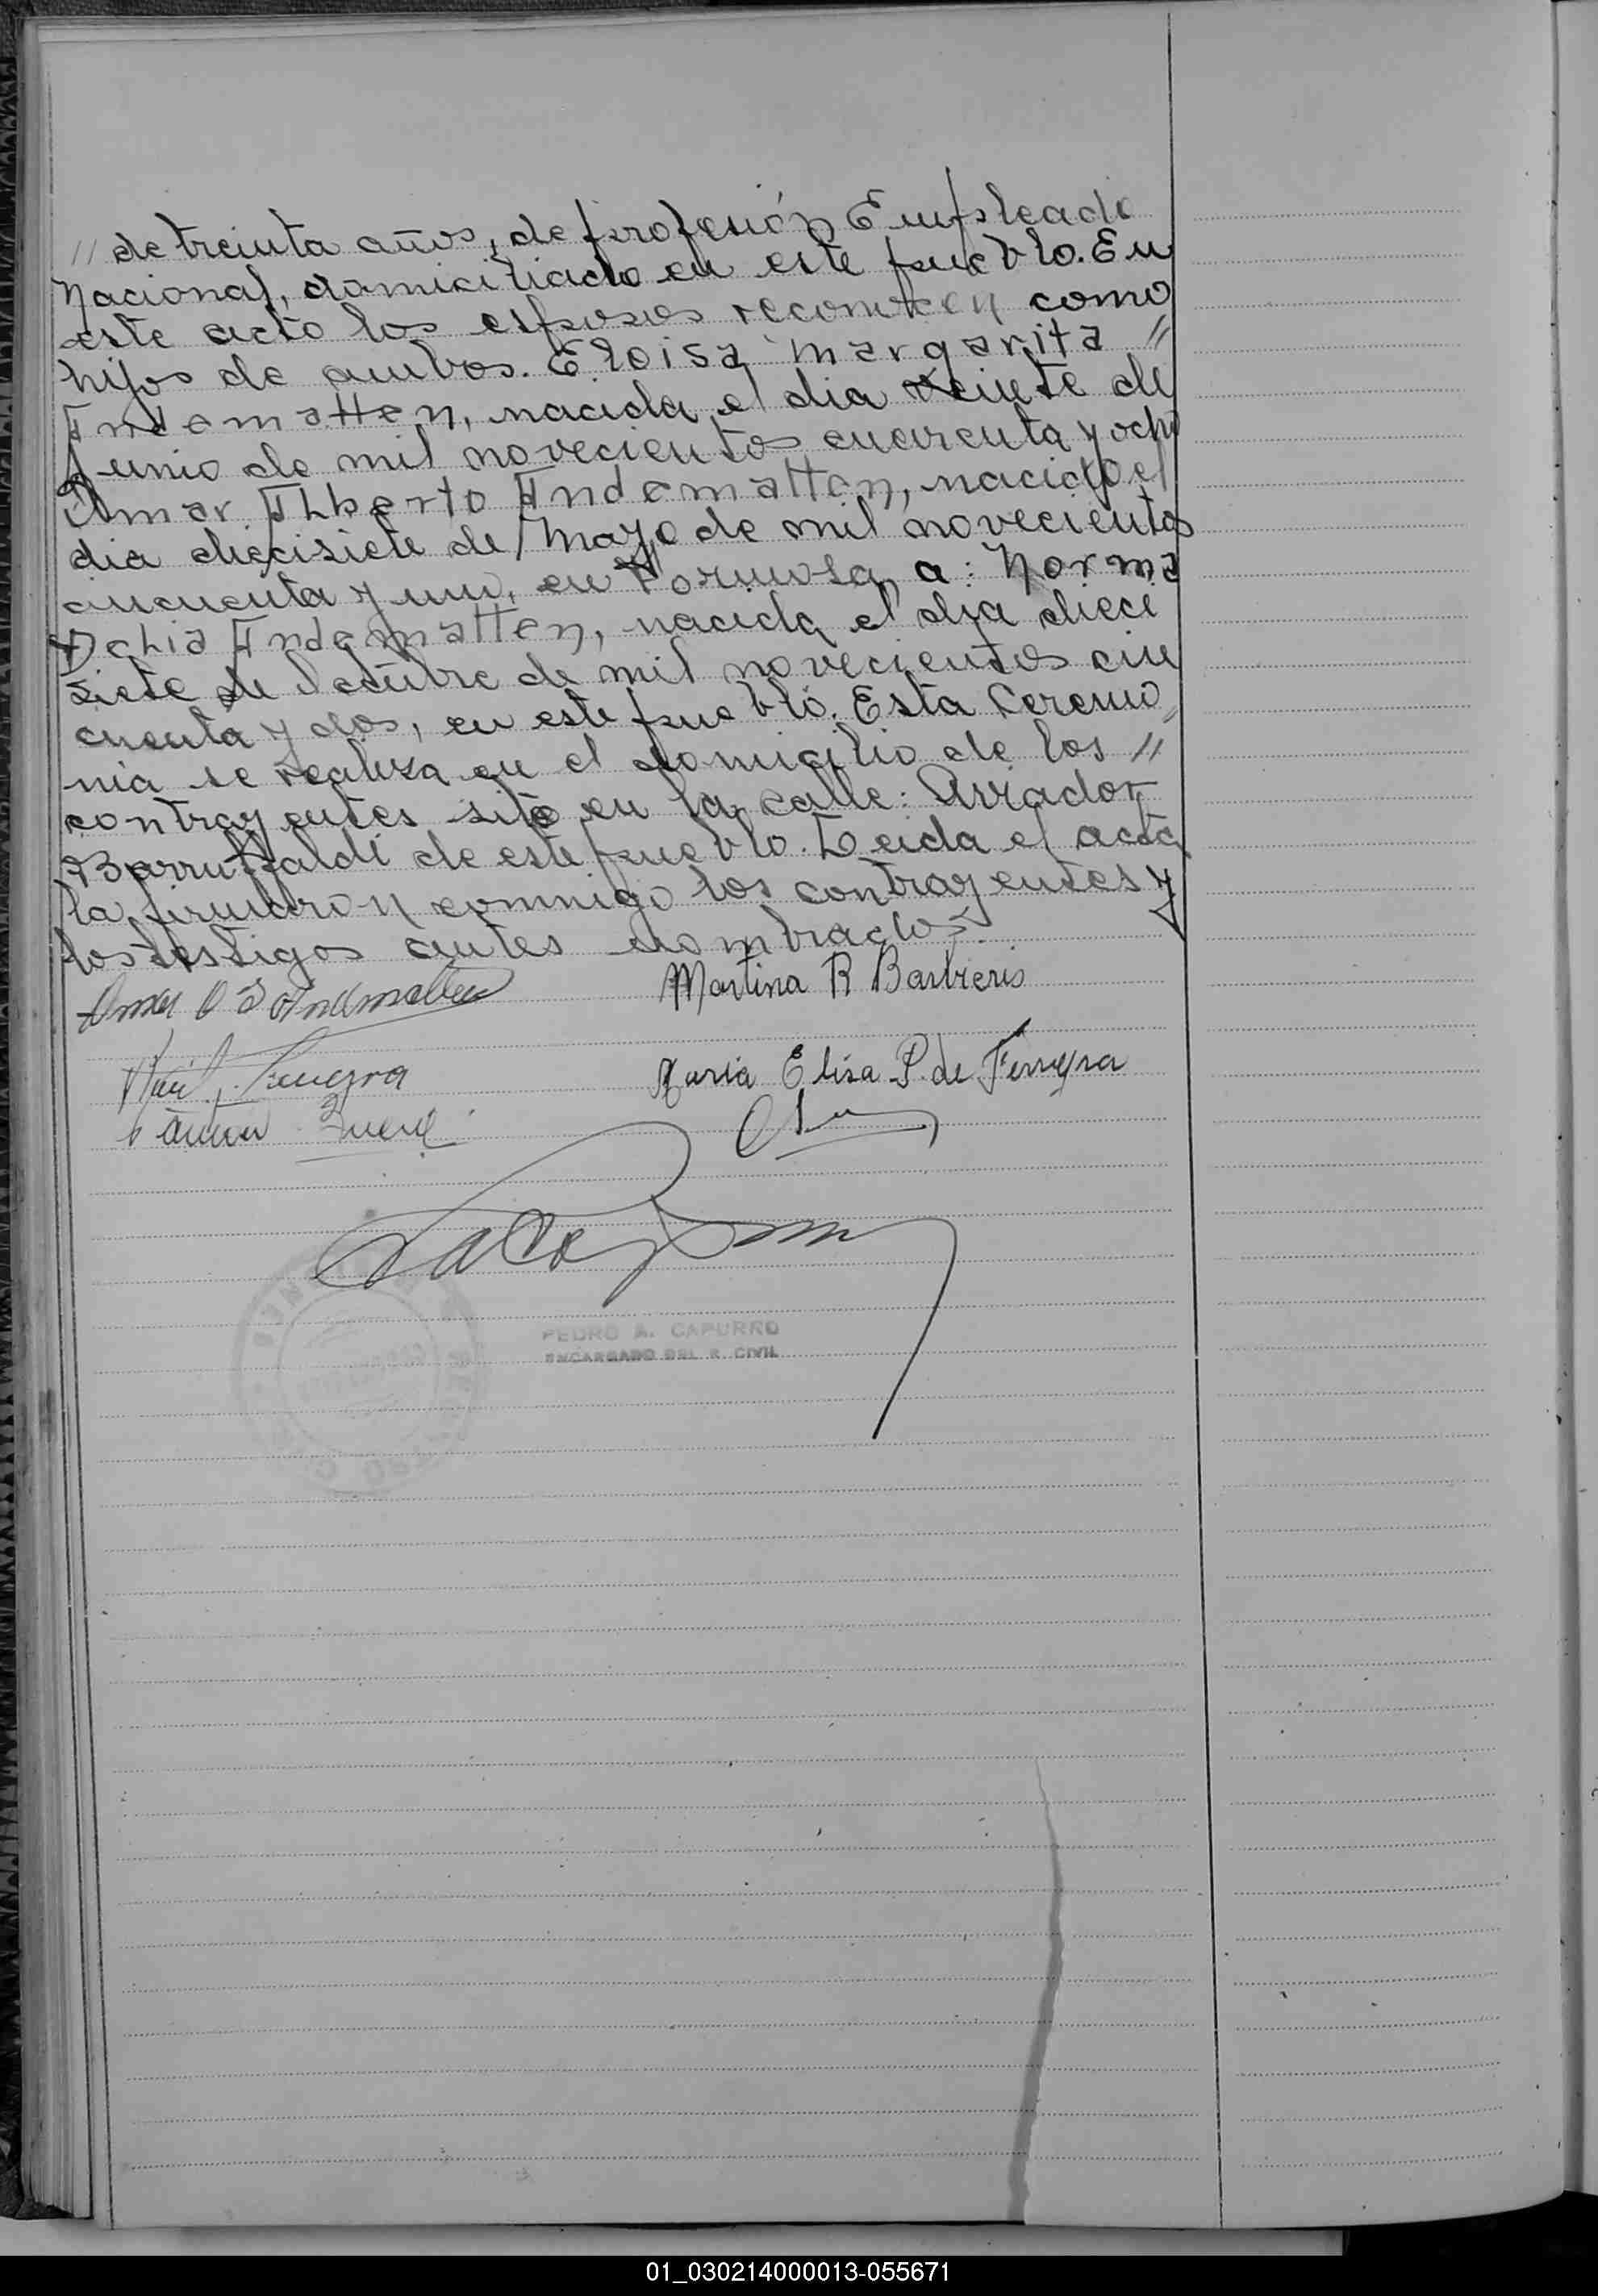 // de treinta años, de profesión Empleado
Nacional, domiciliado en este pueblo. En
este acto los esposos reconocen como
hijos de ambos. Eloisa Margarita //
Andematten, nacida el dia veinte de
Junio de mil novecientos cuarenta y ocho
Omar Alberto Andematten, nacido el
dia diecisiete de Mayo de mil novecientos
cincuenta y uno, en Formosa, a: Norma
Delia Andematten, nacida el dia dieci
siete de Octubre de mil novecientos cin
cuenta y dos, en este pueblo. Esta Ceremo
nia se realiza en el domicilio de los //
contrayentes sito en la calle: Aviador
Barruffaldi de este pueblo. Leida el acta
la firmaron conmigo los contrayentes y
los testigos antes nombrados.
Omar O S Andematten Martina R Barbieris
Ferreyra Maria Elisa P. de Ferreyra
PEDRO A. CAPURRO
ENCARGADO DEL R. CIVIL
01_030214000013-055671